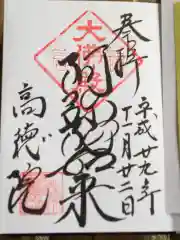 奉拝
平成廿九年
月廿二日
阿弥陀如来
高徳院